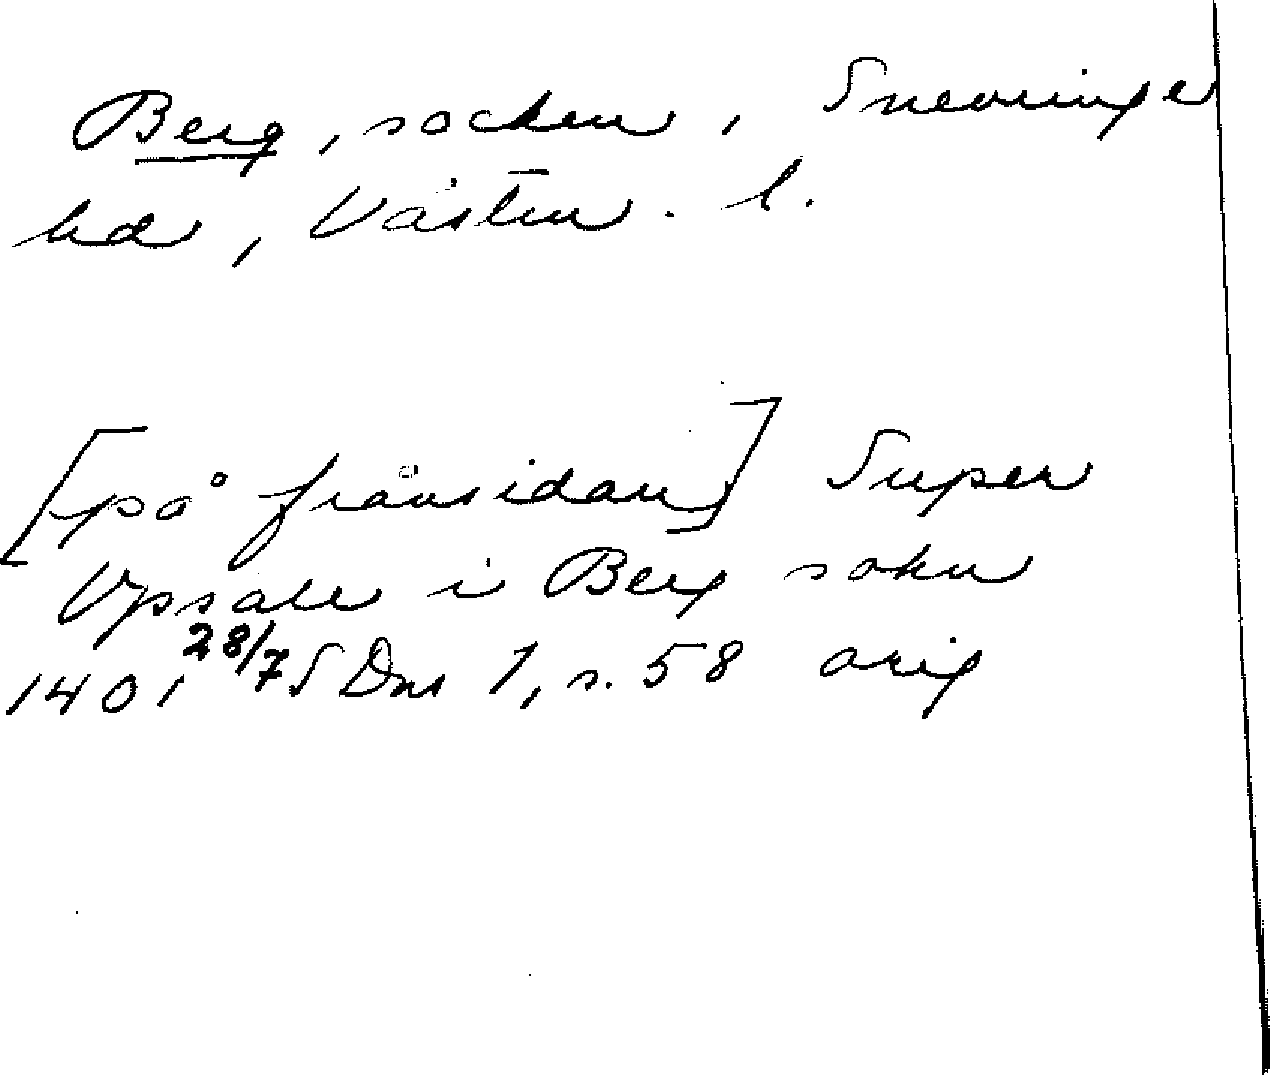 Berg, socken, Snevringe
hd, Västm. l.
[på frånsidan] Super
Vpsale i Berg sokn
1401 28/7 SDns 1, s. 58 orig